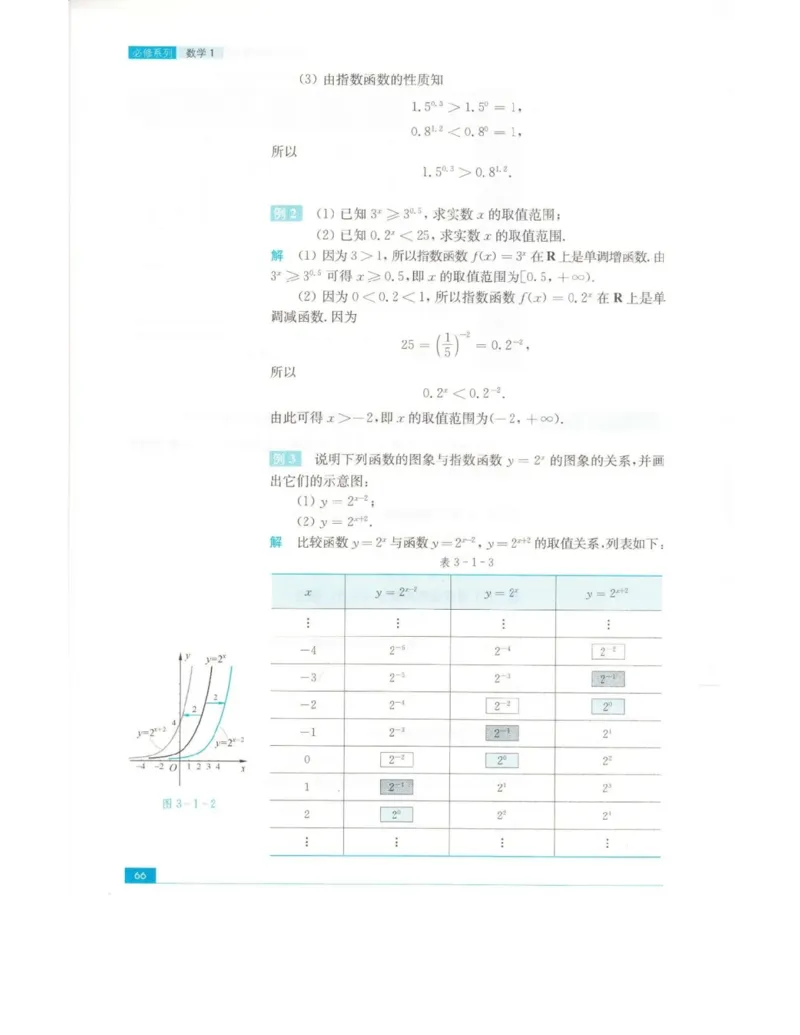 必修系列 数学 1
(3) 由指数函数的性质知
1.5^0.3 > 1.5^0 = 1,
0.8^1.2 < 0.8^0 = 1,
所以
1.5^0.3 > 0.8^1.2.
例 2 (1) 已知 3^x ⩾ 3^0.5, 求实数 x 的取值范围;
(2) 已知 0.2^x < 25, 求实数 x 的取值范围.
解 (1) 因为 3 > 1, 所以指数函数 f(x) = 3^x 在 R 上是单调增函数. 由
3^x ⩾ 3^0.5 可得 x ⩾ 0.5, 即 x 的取值范围为[0.5, +∞).
(2) 因为 0 < 0.2 < 1, 所以指数函数 f(x) = 0.2^x 在 R 上是单
调减函数. 因为
25 = (1/5)^-2 = 0.2^-2,
所以
0.2^x < 0.2^-2.
由此可得 x > -2, 即 x 的取值范围为(-2, +∞).
例 3 说明下列函数的图象与指数函数 y = 2^x 的图象的关系, 并画
出它们的示意图:
(1) y = 2^x-2;
(2) y = 2^x+2.
解 比较函数 y=2^x 与函数 y=2^x-2, y=2^x+2 的取值关系, 列表如下:
表 3-1-3
x y = 2^x-2 y = 2^x y = 2^x+2
⋮ ⋮ ⋮ ⋮
-4 2^-6 2^-4 2^-2
-3 2^-5 2^-3 2^-1
-2 2^-4 2^-2 2^0
-1 2^-3 2^-1 2^1
0 2^-2 2^0 2^2
1 2^-1 2^1 2^3
2 2^0 2^2 2^4
⋮ ⋮ ⋮ ⋮
y y=2^x
2
2
4
y=2^x+2
y=2^x-2
-4 -2 O 1 2 3 4 x
图 3-1-2
66